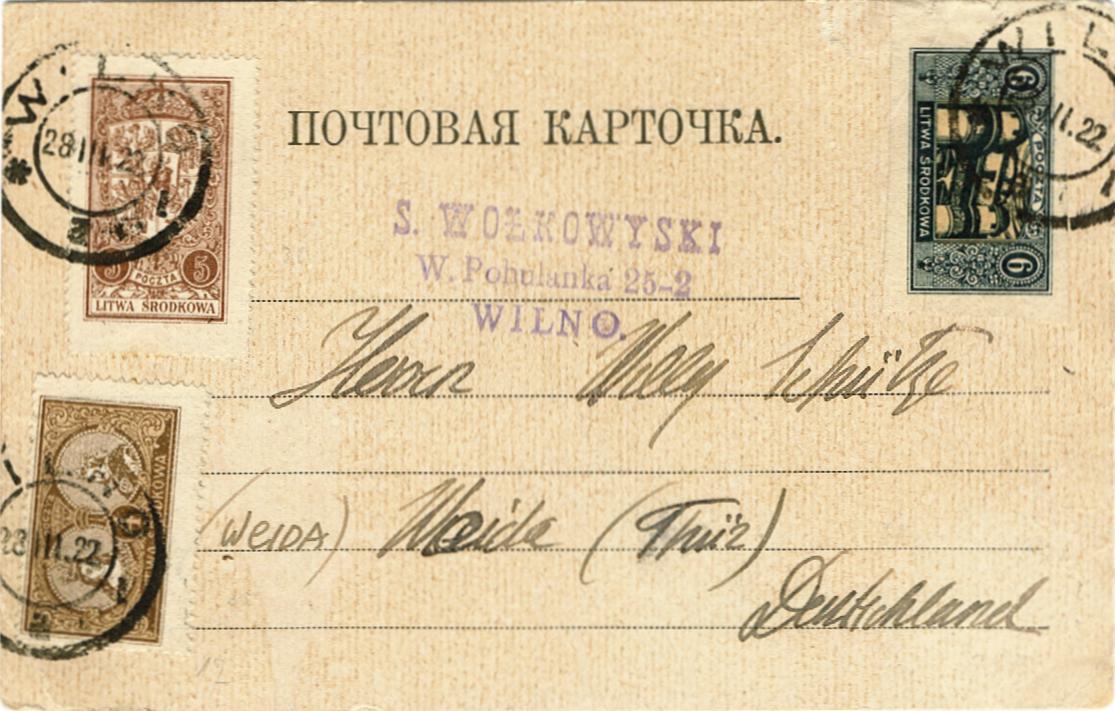 WILNO
28 III.22
2 1
5 5
POCZTA
LITWA ŚRODKOWA
ПОЧТОВАЯ КАРТОЧКА.
WIL
III.22
1
6
LITWA ŚRODKOWA
POCZTA
6
S. WOŁKOWYSKI
W. Pohulanka 25-2
WILNO.
Herrn Willy Schütze
ŚRODKOWA
28 III.22
2 1
(WEIDA) Weida (Thür)
Deutschland
12